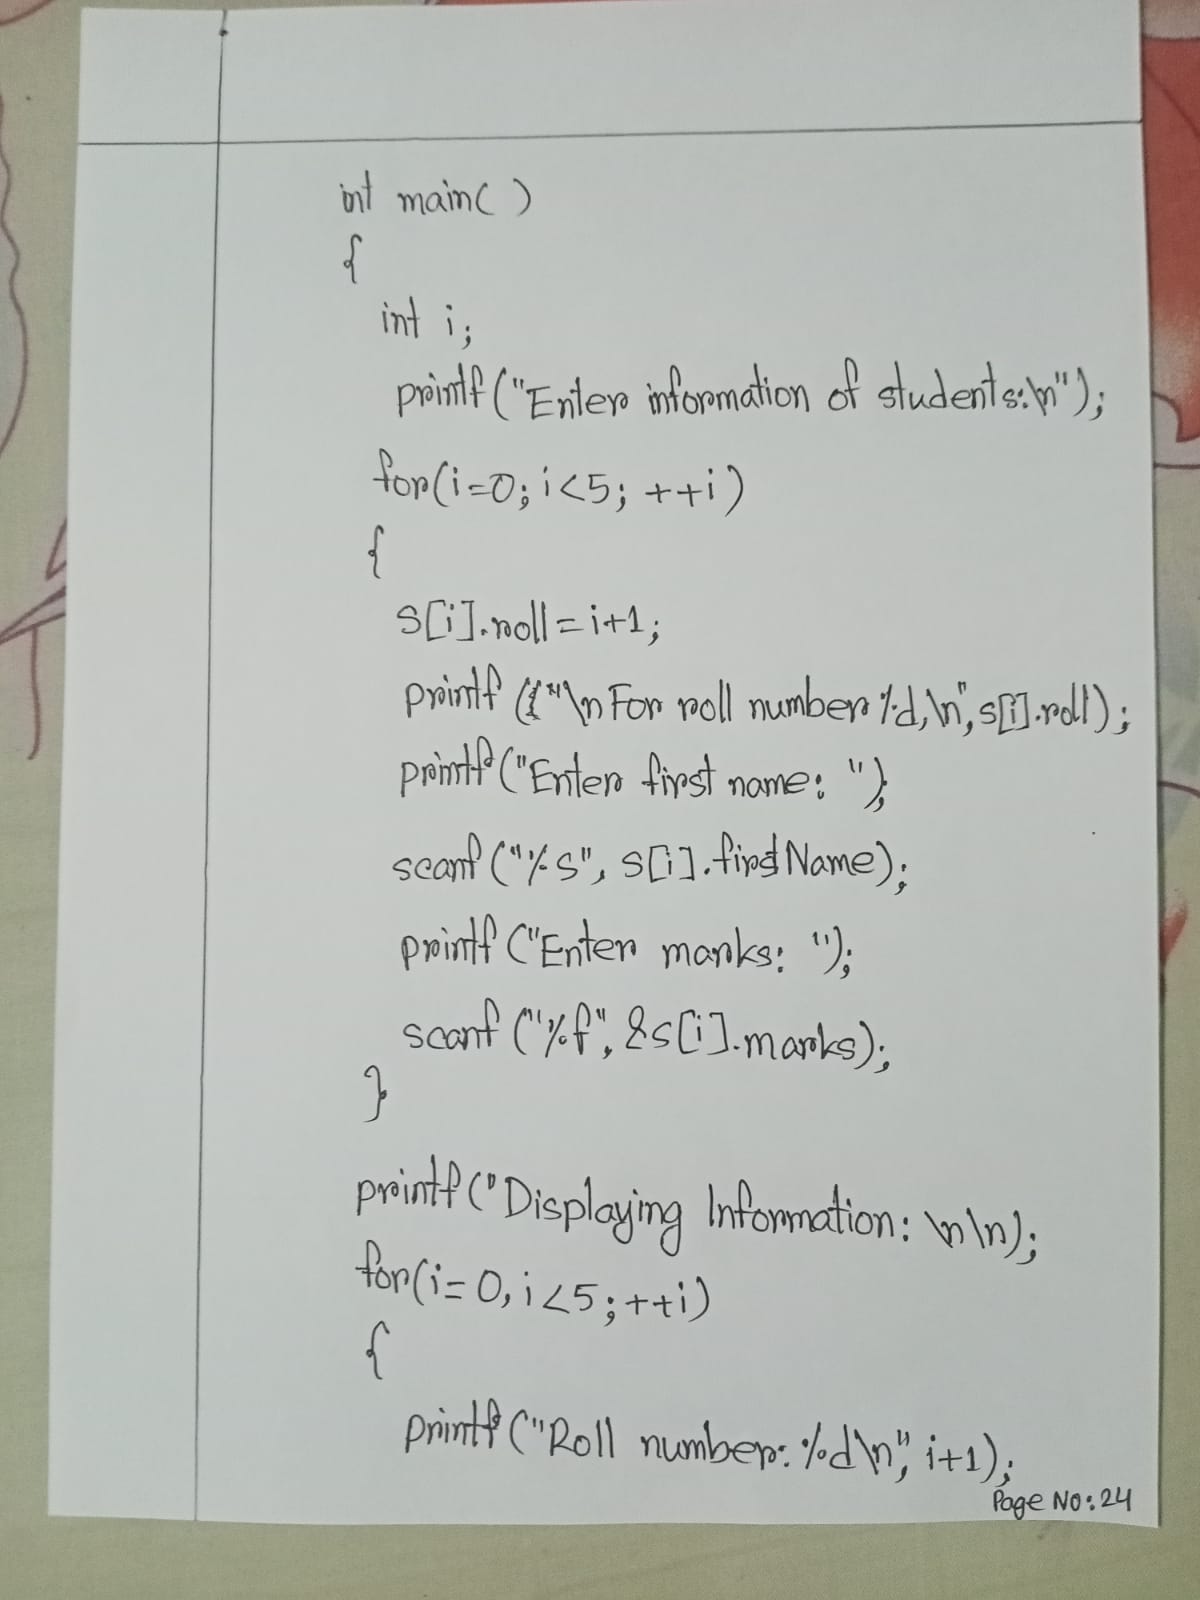 int main( )
{
int i;
printf ("Enter information of students:\n");
for(i=0; i<5; ++i)
{
s[i].roll = i+1;
printf ("\n For roll number %d,\n", s[i].roll);
printf ("Enter first name: ");
scanf ("%s", s[i].firstName);
printf ("Enter marks: ");
scanf ("%f", &s[i].marks);
}
printf ("Displaying Information: \n\n);
for(i=0, i<5; ++i)
{
printf ("Roll number: %d\n", i+1);
Page No: 24